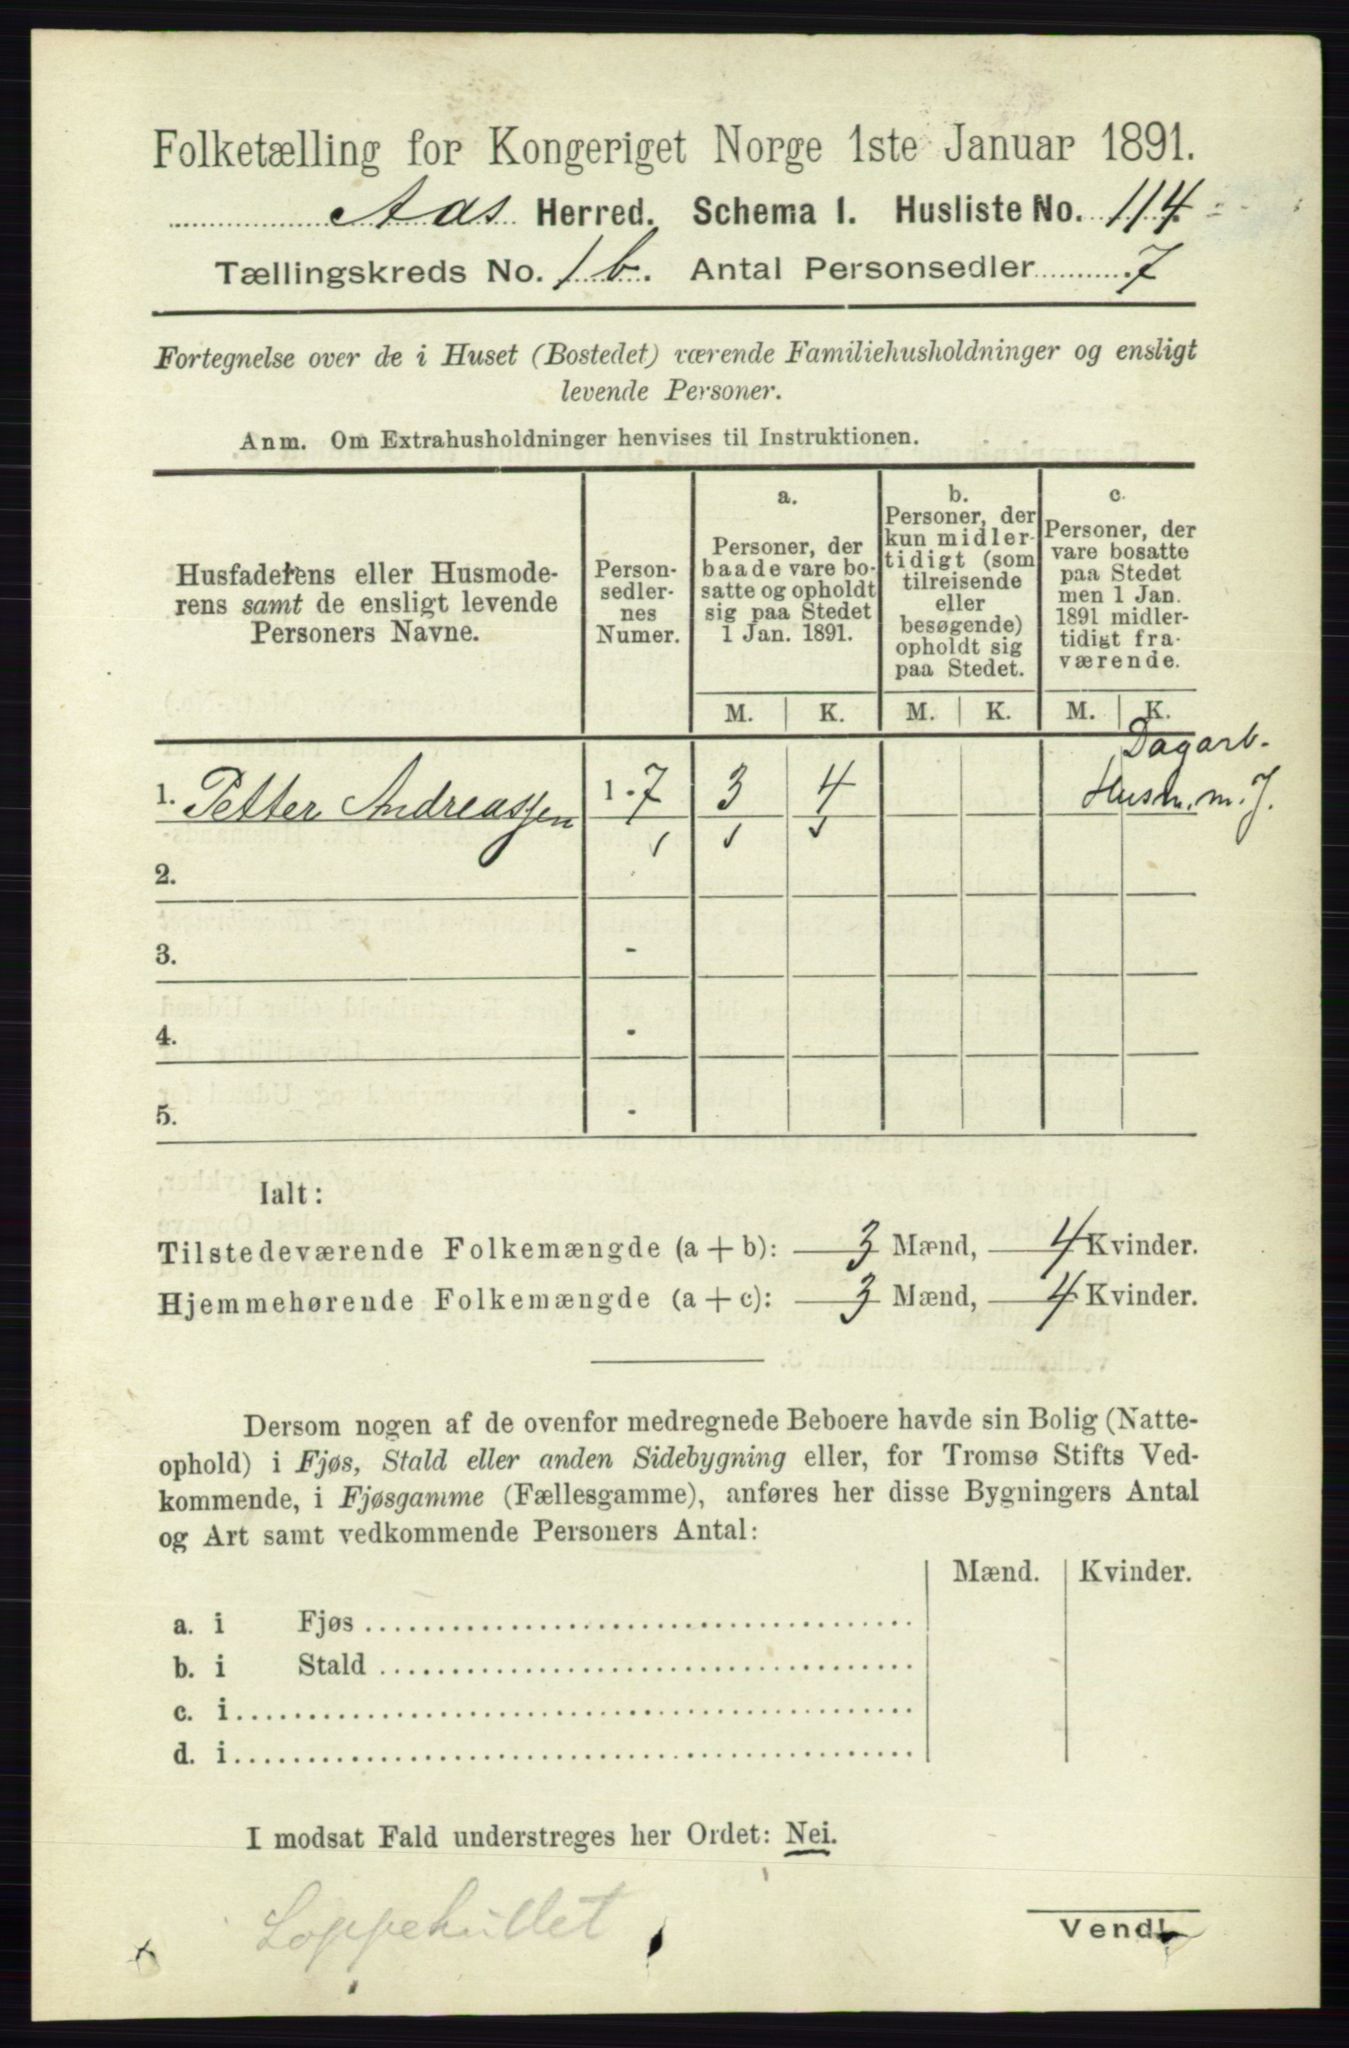 Folketælling for Kongeriget Norge 1ste Januar 1891.
Aas Herred. Schema 1. Husliste No. 114
Tællingskreds No. 1 b. Antal Personsedler 7
Fortegnelse over de i Huset (Bostedet) værende Familiehusholdninger og ensligt
levende Personer.
Anm. Om Extrahusholdninger henvises til Instruktionen.
Husfaderens eller Husmode-
rens samt de ensligt levende
Personers Navne.
Person-
sedler-
nes
Numer.
a.
Personer, der
baade vare bo-
satte og opholdt
sig paa Stedet
1 Jan. 1891.
b.
Personer, der
kun midler-
tidigt (som
tilreisende
eller
besøgende)
opholdt sig
paa Stedet.
c.
Personer, der
vare bosatte
paa Stedet
men 1 Jan.
1891 midler-
tidigt fra-
værende.
M. K. M. K. M. K.
Dagarb.
1. Petter Andreassen 1-7 3 4 Husm. m. J.
2.
3. -
4. -
5. -
Ialt:
Tilstedeværende Folkemængde (a + b): 3 Mænd, 4 Kvinder.
Hjemmehørende Folkemængde (a + c): 3 Mænd, 4 Kvinder.
Dersom nogen af de ovenfor medregnede Beboere havde sin Bolig (Natte-
ophold) i Fjøs, Stald eller anden Sidebygning eller, for Tromsø Stifts Ved-
kommende, i Fjøsgamme (Fællesgamme), anføres her disse Bygningers Antal
og Art samt vedkommende Personers Antal:
Mænd. Kvinder.
a. i Fjøs
b. i Stald
c. i
d. i
I modsat Fald understreges her Ordet: Nei.
Loppehullet
Vend!